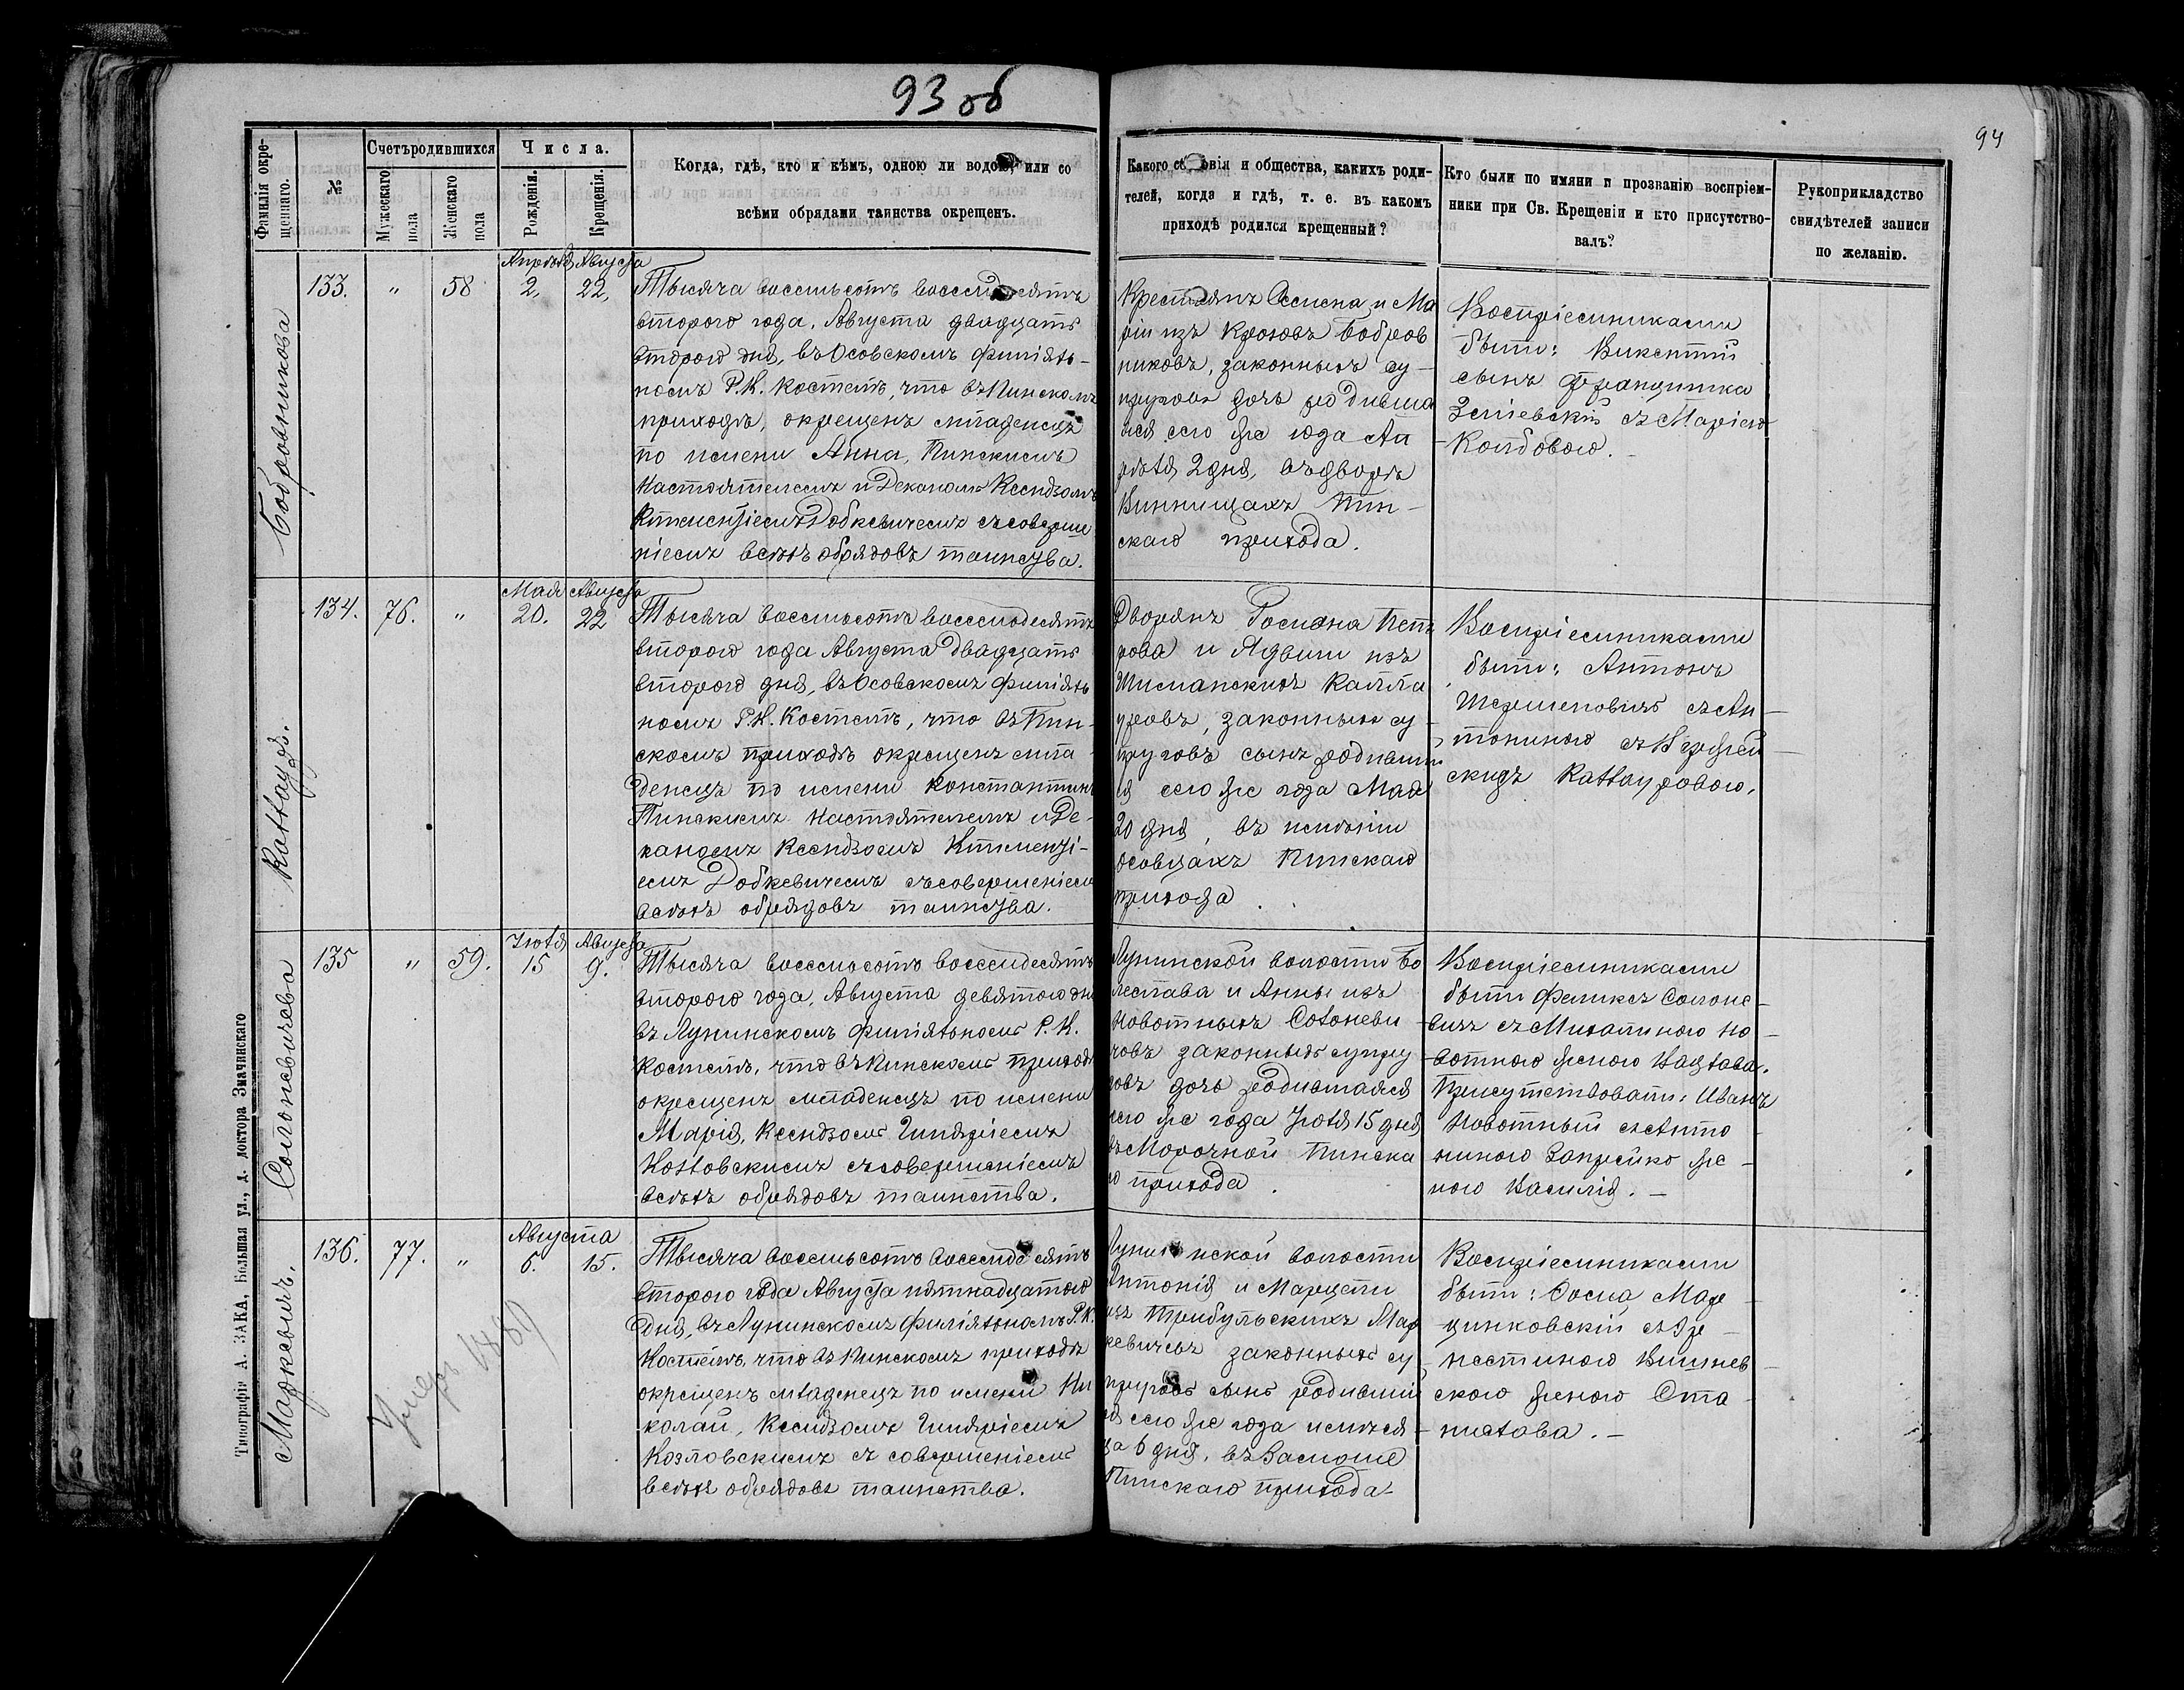 93 об
94
Фамилія окре-
щеннаго.
№
Счетъ родившихся
Мужескаго
пола
Женскаго
пола
Числа.
Рожденія.
Крещенія.
Когда, гдѣ, кто и кѣмъ, одною ли водою, или со
всѣми обрядами таинства окрещенъ.
Какого сословія и общества, какихъ роди-
телей, когда и гдѣ, т. е. въ какомъ
приходѣ родился крещенный?
Кто были по имяни и прозванію воспріем-
ники при Св. Крещеніи и кто присутство-
валъ?
Рукоприкладство
свидѣтелей записи
по желанію.
Бобровникова
133.
"
58
Апрѣля Августа
2, 22,
Тысяча восемьсотъ восемьдесятъ
второго года, Августа двадцать
второго дня, въ Осовскомъ филіяль-
номъ Р.К. Костелѣ, что въ Пинскомъ
приходѣ, окрещенъ младенецъ
по имени Анна, Пинскимъ
Настоятелемъ и Деканомъ Ксендзомъ
Клеменсіемъ Добкевичемъ съ соверше
ніемъ всѣхъ обрядовъ таинства.
Крестьянъ Семена и Ма
ріи изъ Бобров
никовъ, законныхъ су-
пруговъ дочь родивша
яся сего же года Ап
рѣля 2 дня, въ дворѣ
Винницахъ Пин-
скаго прихода.
Воспріемниками
были: Викентій
сынъ Францишка
съ Маріею
Колбовою.
Каллауръ.
134.
76.
"
Мая Августа
20. 22
Тысяча восемьсотъ восемьдесятъ
второго года Августа двадцать
второго дня, въ Осовскомъ филіяль
номъ Р.К. Костелѣ, что въ Пин-
скомъ приходѣ окрещенъ мла-
денецъ по имени Константинъ
Пинскимъ Настоятелемъ и Де-
каномъ Ксендзомъ Клеменсі-
емъ Добкевичемъ съ совершеніемъ
всѣхъ обрядовъ таинства.
Дворянъ Романа Пет
рова и Ядвиги изъ
Шиманскихъ Калла
уровъ, законныхъ су-
пруговъ сынъ родивші
ся сего же года Мая
20 дня, въ имѣніи
Осовцахъ Пинскаго
прихода
Воспріемниками
были: Антонъ
съ Ан-
тониною
Каллауровою.
Солоневичева
135
"
59.
Іюля Августа
15 9.
Тысяча восемьсотъ восемьдесятъ
второго года, Августа девятого дня
въ Лунинскомъ филіяльномъ Р.К.
Костелѣ, что въ Пинскомъ приходѣ
окрещенъ младенецъ по имени
Марія, Ксендзомъ Гиляріемъ
Козловскимъ съ совершеніемъ
всѣхъ обрядовъ таинства.
Лунинской волости Бо
леслава и Анны изъ
Новотныхъ Солоневи
човъ законныхъ супру
говъ дочь родившаяся
сего же года Іюля 15 дня
въ Морочной Пинска
го прихода.
Воспріемниками
были Феликсъ Солоне-
вичъ съ Михалиною Но-
вотною женою Вацлава.
Присутствовали: Иванъ
Новотный съ Анто-
ниною Запрейко же-
ною Василія.
Маркевичъ.
136.
77.
"
Августа
6. 15.
Умеръ 1889
Тысяча восемьсотъ восемьдесятъ
второго года Августа пятнадцатого
дня, въ Лунинскомъ Филіяльномъ Р.К.
Костелѣ, что въ Пинскомъ приходѣ
окрещенъ младенецъ по имени Ни
колай, Ксендзомъ Гиляріемъ
Козловскимъ съ совершеніемъ
всѣхъ обрядовъ таинства.
Лунинской волости
Антонія и Марцели
изъ Трибульскихъ Мар
кевичовъ законныхъ су-
пруговъ сынъ родившій
ся сего же года мѣся-
ца 6 дня, въ Замошѣ
Пинскаго прихода
Воспріемниками
были: Фома Мар-
цинковскій съ Эр-
нестиною Вишнев-
скою женою Ста-
нислава.
Типографія А. ЗАКА, Большая ул., д. доктора Значинскаго